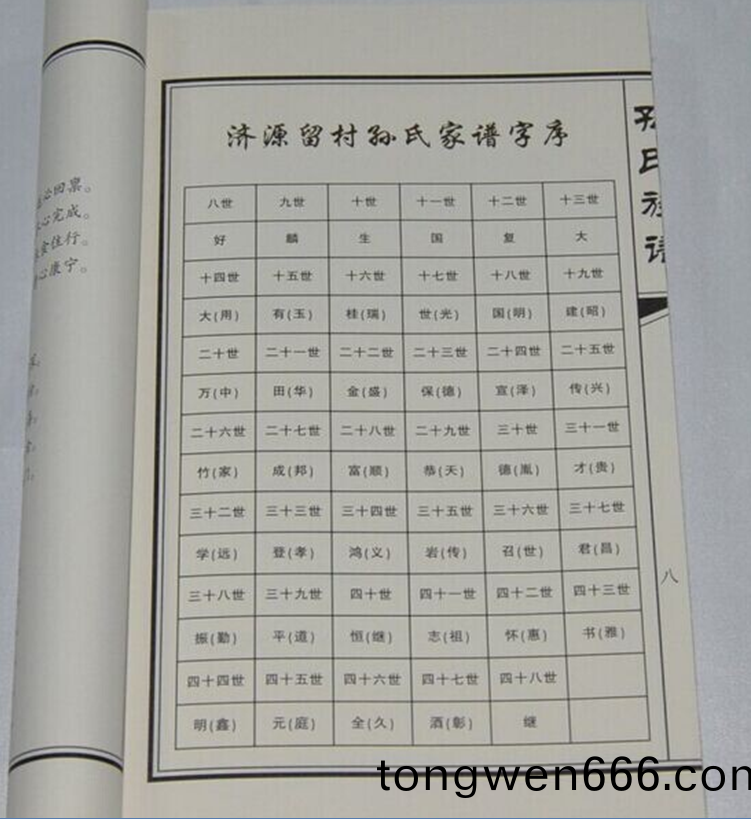 济源留村孙氏家谱字序
八世 九世 十世 十一世 十二世 十三世
好 麟 生 国 复 大
十四世 十五世 十六世 十七世 十八世 十九世
大(用) 有(玉) 桂(瑞) 世(光) 国(明) 建(昭)
二十世 二十一世 二十二世 二十三世 二十四世 二十五世
万(中) 田(华) 金(盛) 保(德) 宣(泽) 传(兴)
二十六世 二十七世 二十八世 二十九世 三十世 三十一世
竹(家) 成(邦) 富(顺) 恭(天) 德(胤) 才(贵)
三十二世 三十三世 三十四世 三十五世 三十六世 三十七世
学(远) 登(孝) 鸿(义) 岩(传) 召(世) 君(昌)
三十八世 三十九世 四十世 四十一世 四十二世 四十三世
振(勤) 平(道) 恒(继) 志(祖) 怀(惠) 书(雅)
四十四世 四十五世 四十六世 四十七世 四十八世
明(鑫) 元(庭) 全(久) 酒(彰) 继
孙氏族谱
八
必回禀。
心完成。
食住行。
心康宁。
tongwen666.com